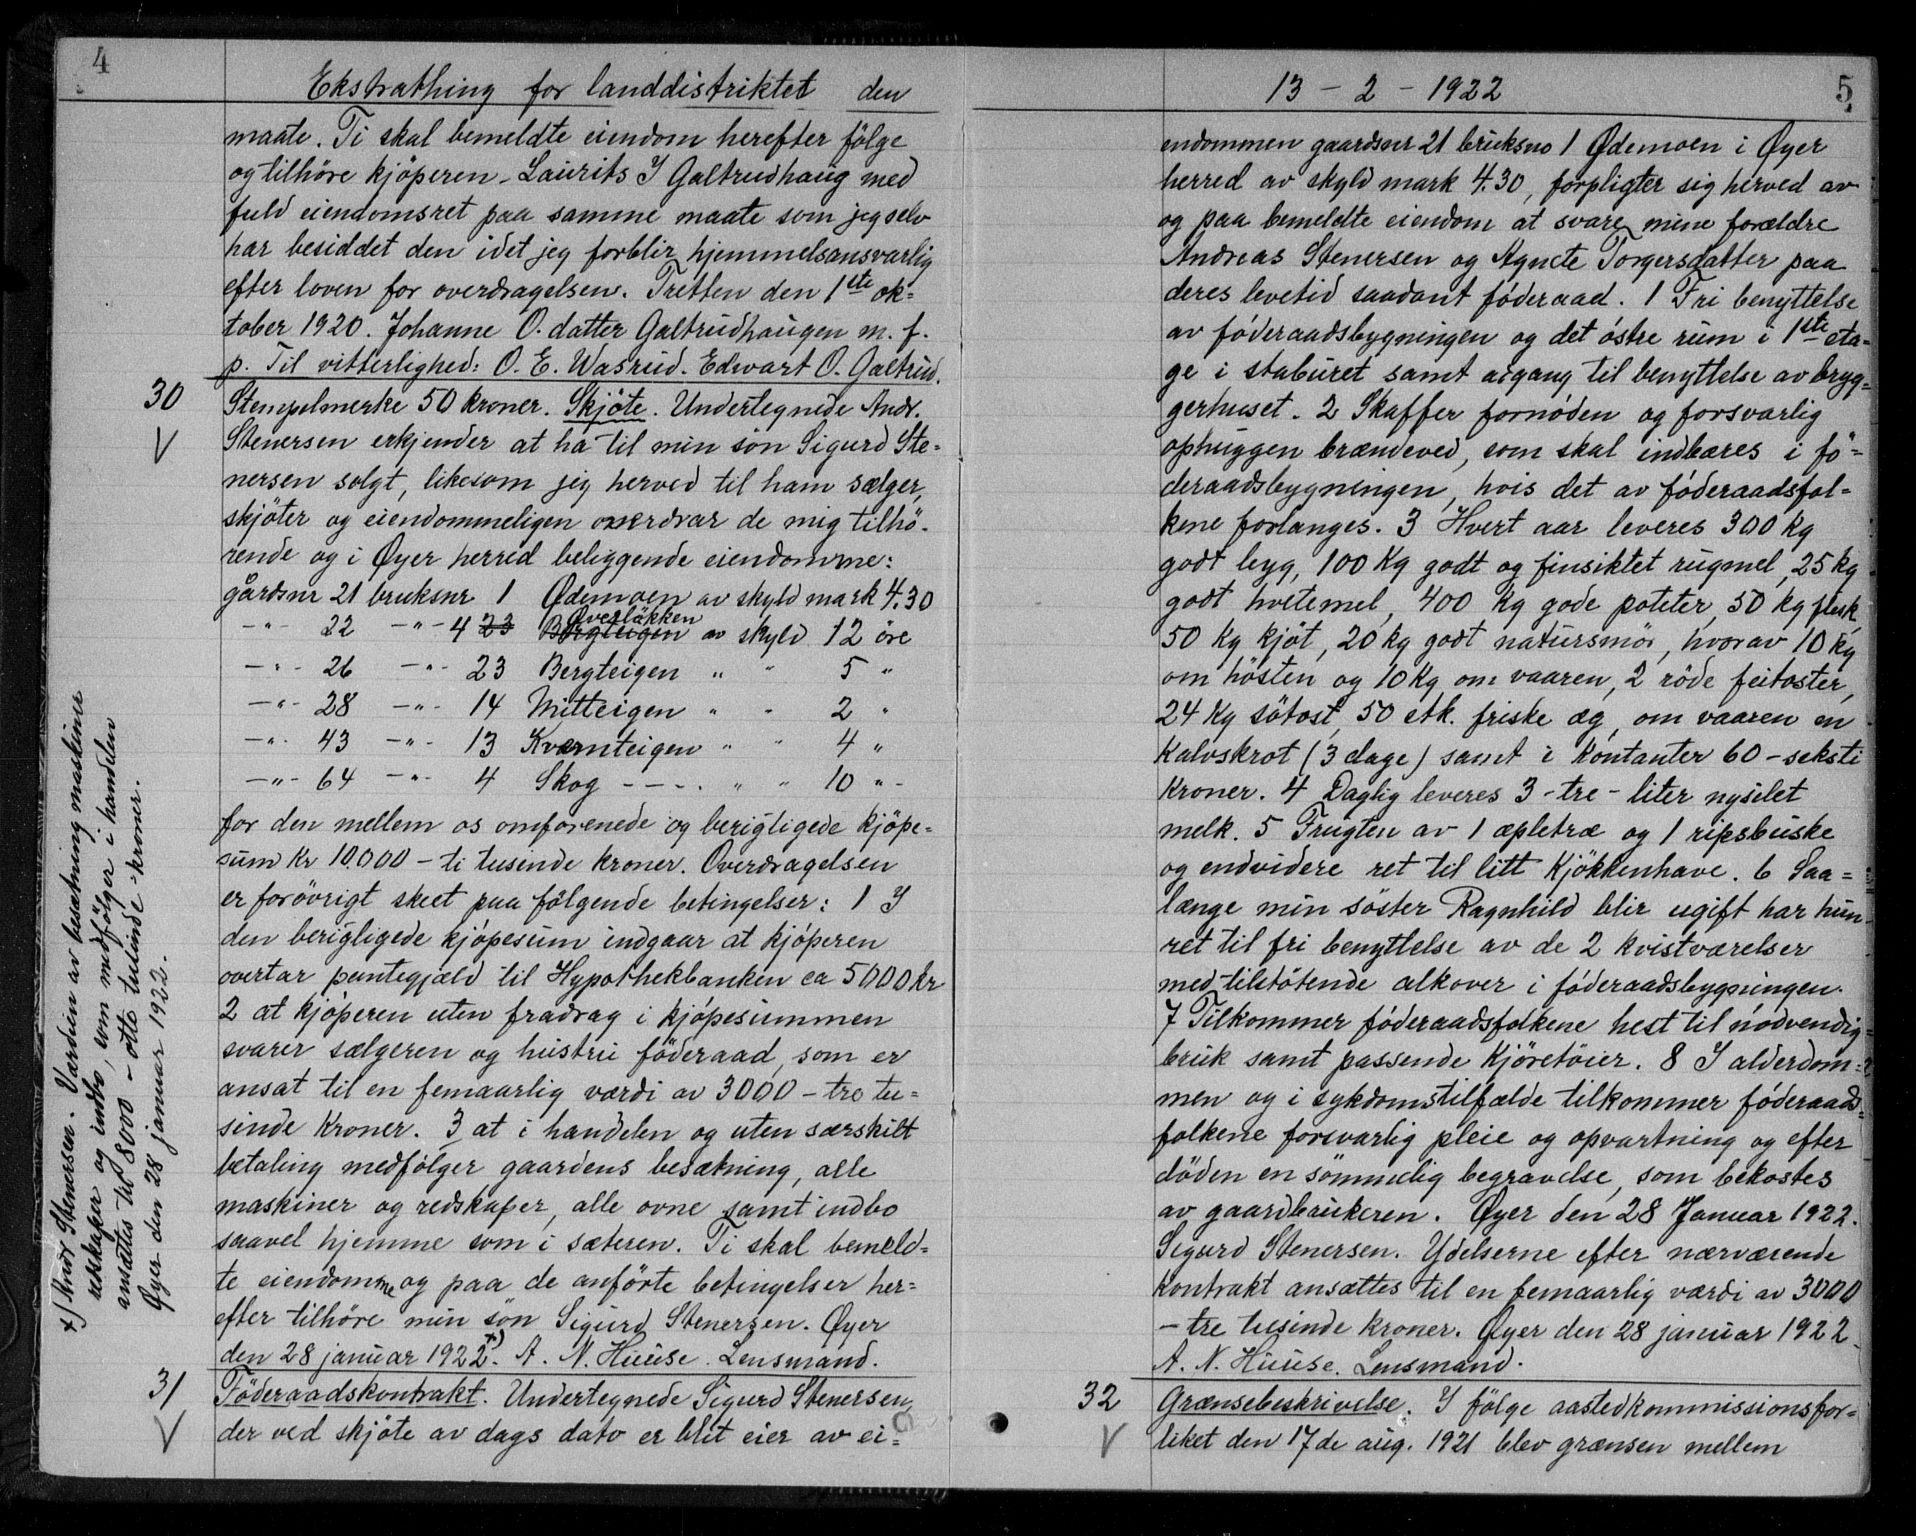 4
Ekstrathing for landdistriktet den
maate. Ti skal bemeldte eiendom herefter følge
og tilhøre kjøperen Laurits J Galtrudhaug med
fuld eiendomsret paa samme maate som jeg selv
har besiddet den idet jeg forblir hjemmelsansvarlig
efter loven for overdragelsen. Tretten den 1ste ok=
tober 1920. Johanne O. datter Galtrudhaugen m. f.
p. Til vitterlighed: O. E. Wasrud. Edvart O. Galtrud.
30
V
Stempelmerke 50 kroner. Skjøte. Undertegnede Andr.
Stenersen erkjender at ha til min søn Sigurd Ste=
nersen solgt, likesom jeg herved til ham sælger,
skjøter og eiendommeligen overdrar de mig tilhø-
rende og i Øyer herred beliggende eiendomme:
gårdsnr 21 bruksnr 1 Ødemoen av skyld mark 4.30
Øverløkken
-"- 22 -"- 4 23 Bergteigen av skyld 12 øre
-"- 26 -"- 23 Bergteigen " " 5 "
-"- 28 -"- 14 Mitteigen " " 2 "
-"- 43 -"- 13 Kværnteigen " " 4 "
-"- 64 -"- 4 Skog - - - . " " 10 " -
for den mellem os omforenede og berigtigede kjøpe=
sum kr 10.000 - ti tusende kroner. Overdragelsen
er forøvrigt skeet paa følgende betingelser: 1 I
den berigtigede kjøpesum indgaar at kjøperen
overtar pantegjæld til Hypothekbanken ca 5000 kr
2 at kjøperen uten fradrag i kjøpesummen
svarer sælgeren og hustru føderaad, som er
ansat til en femaarlig værdi av 3000 - tre tu=
sinde kroner. 3 at i handelen og uten særskilt
betaling medfølger gaardens besætning, alle
maskiner og redskaper, alle ovne samt indbo
saavel hjemme som i sæteren. Ti skal bemeld=
te eiendomme og paa de anførte betingelser her=
efter tilhøre min søn Sigurd Stenersen. Øyer
den 28 januar 1922. +) A. N. Huuse. Lensmand.
31
V
Føderaadskontrakt. Undertegnede Sigurd Stenersen,
der ved skjøte av dags dato er blit eier av ei=
+) Andr Stenersen. Værdien av besætning maskiner
redskaper og indbo, som medfølger i handelen
ansættes til 8000 - otte tusinde - kroner.
Øyer den 28 januar 1922.
13 - 2 - 1922
5
endommen gaardsnr 21 bruksno 1 Ødemoen i Øyer
herred av skyld mark 4.30, forpligter sig herved av
og paa bemeldte eiendom at svare mine forældre
Andreas Stenersen og Agnete Torgersdatter paa
deres levetid saadant føderaad. 1 Fri benyttelse
av føderaadsbygningen og det østre rum i 1ste eta=
ge i staburet samt adgang til benyttelse av bryg=
gerhuset. 2 Skaffer fornøden og forsvarlig
ophuggen brændeved, som skal indbæres i fø=
deraadsbygningen, hvis det av føderaadsfol=
kene forlanges. 3 Hvert aar leveres 300 kg
godt byg, 100 kg godt og finsiktet rugmel, 25 kg
godt hvetemel, 400 kg gode poteter, 50 kg flesk,
50 kg kjøt, 20 kg godt natursmør, hvorav 10 kg
om høsten og 10 kg om vaaren, 2 røde feitoster,
24 kg søtost, 50 stk. friske æg, om vaaren en
kalvskrot (3 dage) samt i kontanter 60 - seksti
kroner. 4 Daglig leveres 3 - tre - liter nysilet
melk. 5 Frugten av 1 æpletræ og 1 ripsbuske
og endvidere ret til litt kjøkkenhave. 6 Saa=
længe min søster Ragnhild blir ugift har hun
ret til fri benyttelse av de 2 kvistværelser
med tilstøtende alkover i føderaadsbygningen.
7 Tilkommer føderaadsfolkene hest til nødvendig
bruk samt passende kjøretøier. 8 I alderdom=
men og i sykdomstilfælde tilkommer føderaads=
folkene forsvarlig pleie og opvartning og efter
døden en sømmelig begravelse, som bekostes
av gaardbrukeren. Øyer den 28 Januar 1922.
Sigurd Stenersen. Ydelserne efter nærværende
kontrakt ansættes til en femaarlig værdi av 3000
- tre tusinde kroner. Øyer den 28 januar 1922.
A. N. Huuse. Lensmand.
32
V
Grænsebeskrivelse. I følge aastedkommissionsfor=
liket den 17de aug. 1921 blev grænsen mellem